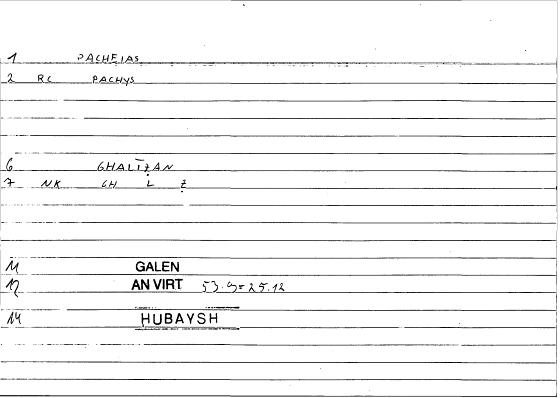 1 PACHEIAS
2 RC PACHYS
6 GHALĪẒAN
7 NK GH L Ẓ
11 GALEN
12 AN VIRT 53.9=25.12
14 HUBAYSH